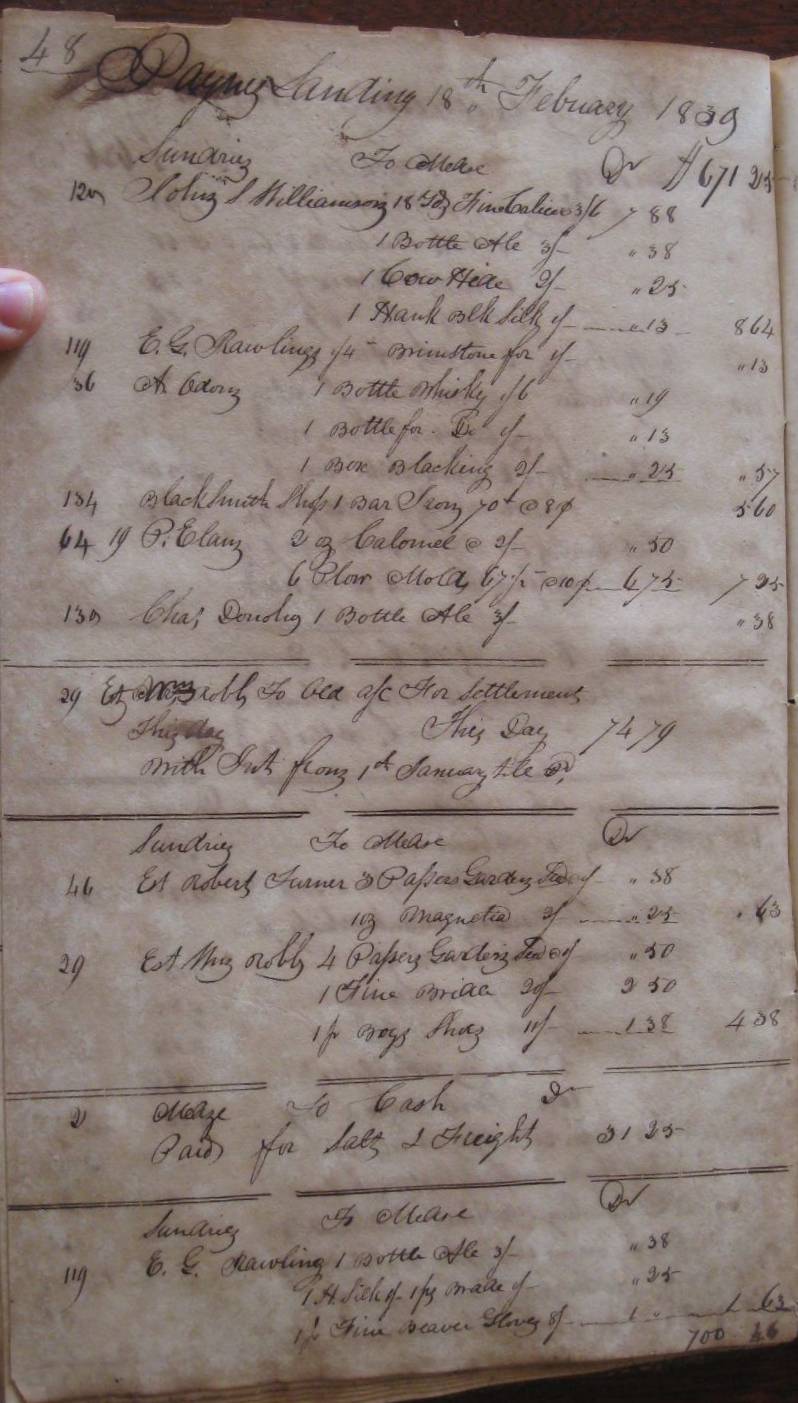 48
Paynes Landing 18th Febuary 1839
Sundries To Mdse Dr $671 25
120 John S Williamson 18 Yds Fine Calico 3/6 7 88
1 Bottle Ale 3/- " 38
1 Cow Hide 2/- " 25
1 Hank Blk Silk 1/- " 13 8 64
119 E. G. Rawlings 1/4 Brimstone for 1/- " 13
36 A 1 Bottle Whisky 1/6 " 19
1 Bottle for Do 1/- " 13
1 Box Blacking 2/- " 25 " 57
134 Blacksmith Shop 1 Bar Iron 70 @ 8¢ 5 60
64 19 P. Elam 2 oz Calomel @ 2/- " 50
6 Plow Molds 67½ @ 10¢ 6 75 7 25
130 Chas 1 Bottle Ale 3/- " 38
29 Est Wm To a/c For Settlement
This day This Day 74 79
With Int from 1st January
Sundries To Mdse Dr
46 Est Robert Turner 3 Papers Garden Seed 1/- " 38
1 oz Magnetia 2/- " 25 " 63
29 Est Wm 4 Papers Garden Seed @ 1/- " 50
1 Fine Bridle 20/- 2 50
1 pr Boys Shoes 11/- 1 38 4 38
2 Mdze To Cash Dr
Paid for Salt & Freight 31 25
Sundries To Mdse Dr
119 E. G. Rawling 1 Bottle Ale 3/- " 38
1 H. Silk 1/- 1 ps Brade 1/- " 25
1 pr Fine Beaver Gloves 8/- 1 " 1 63
700 46